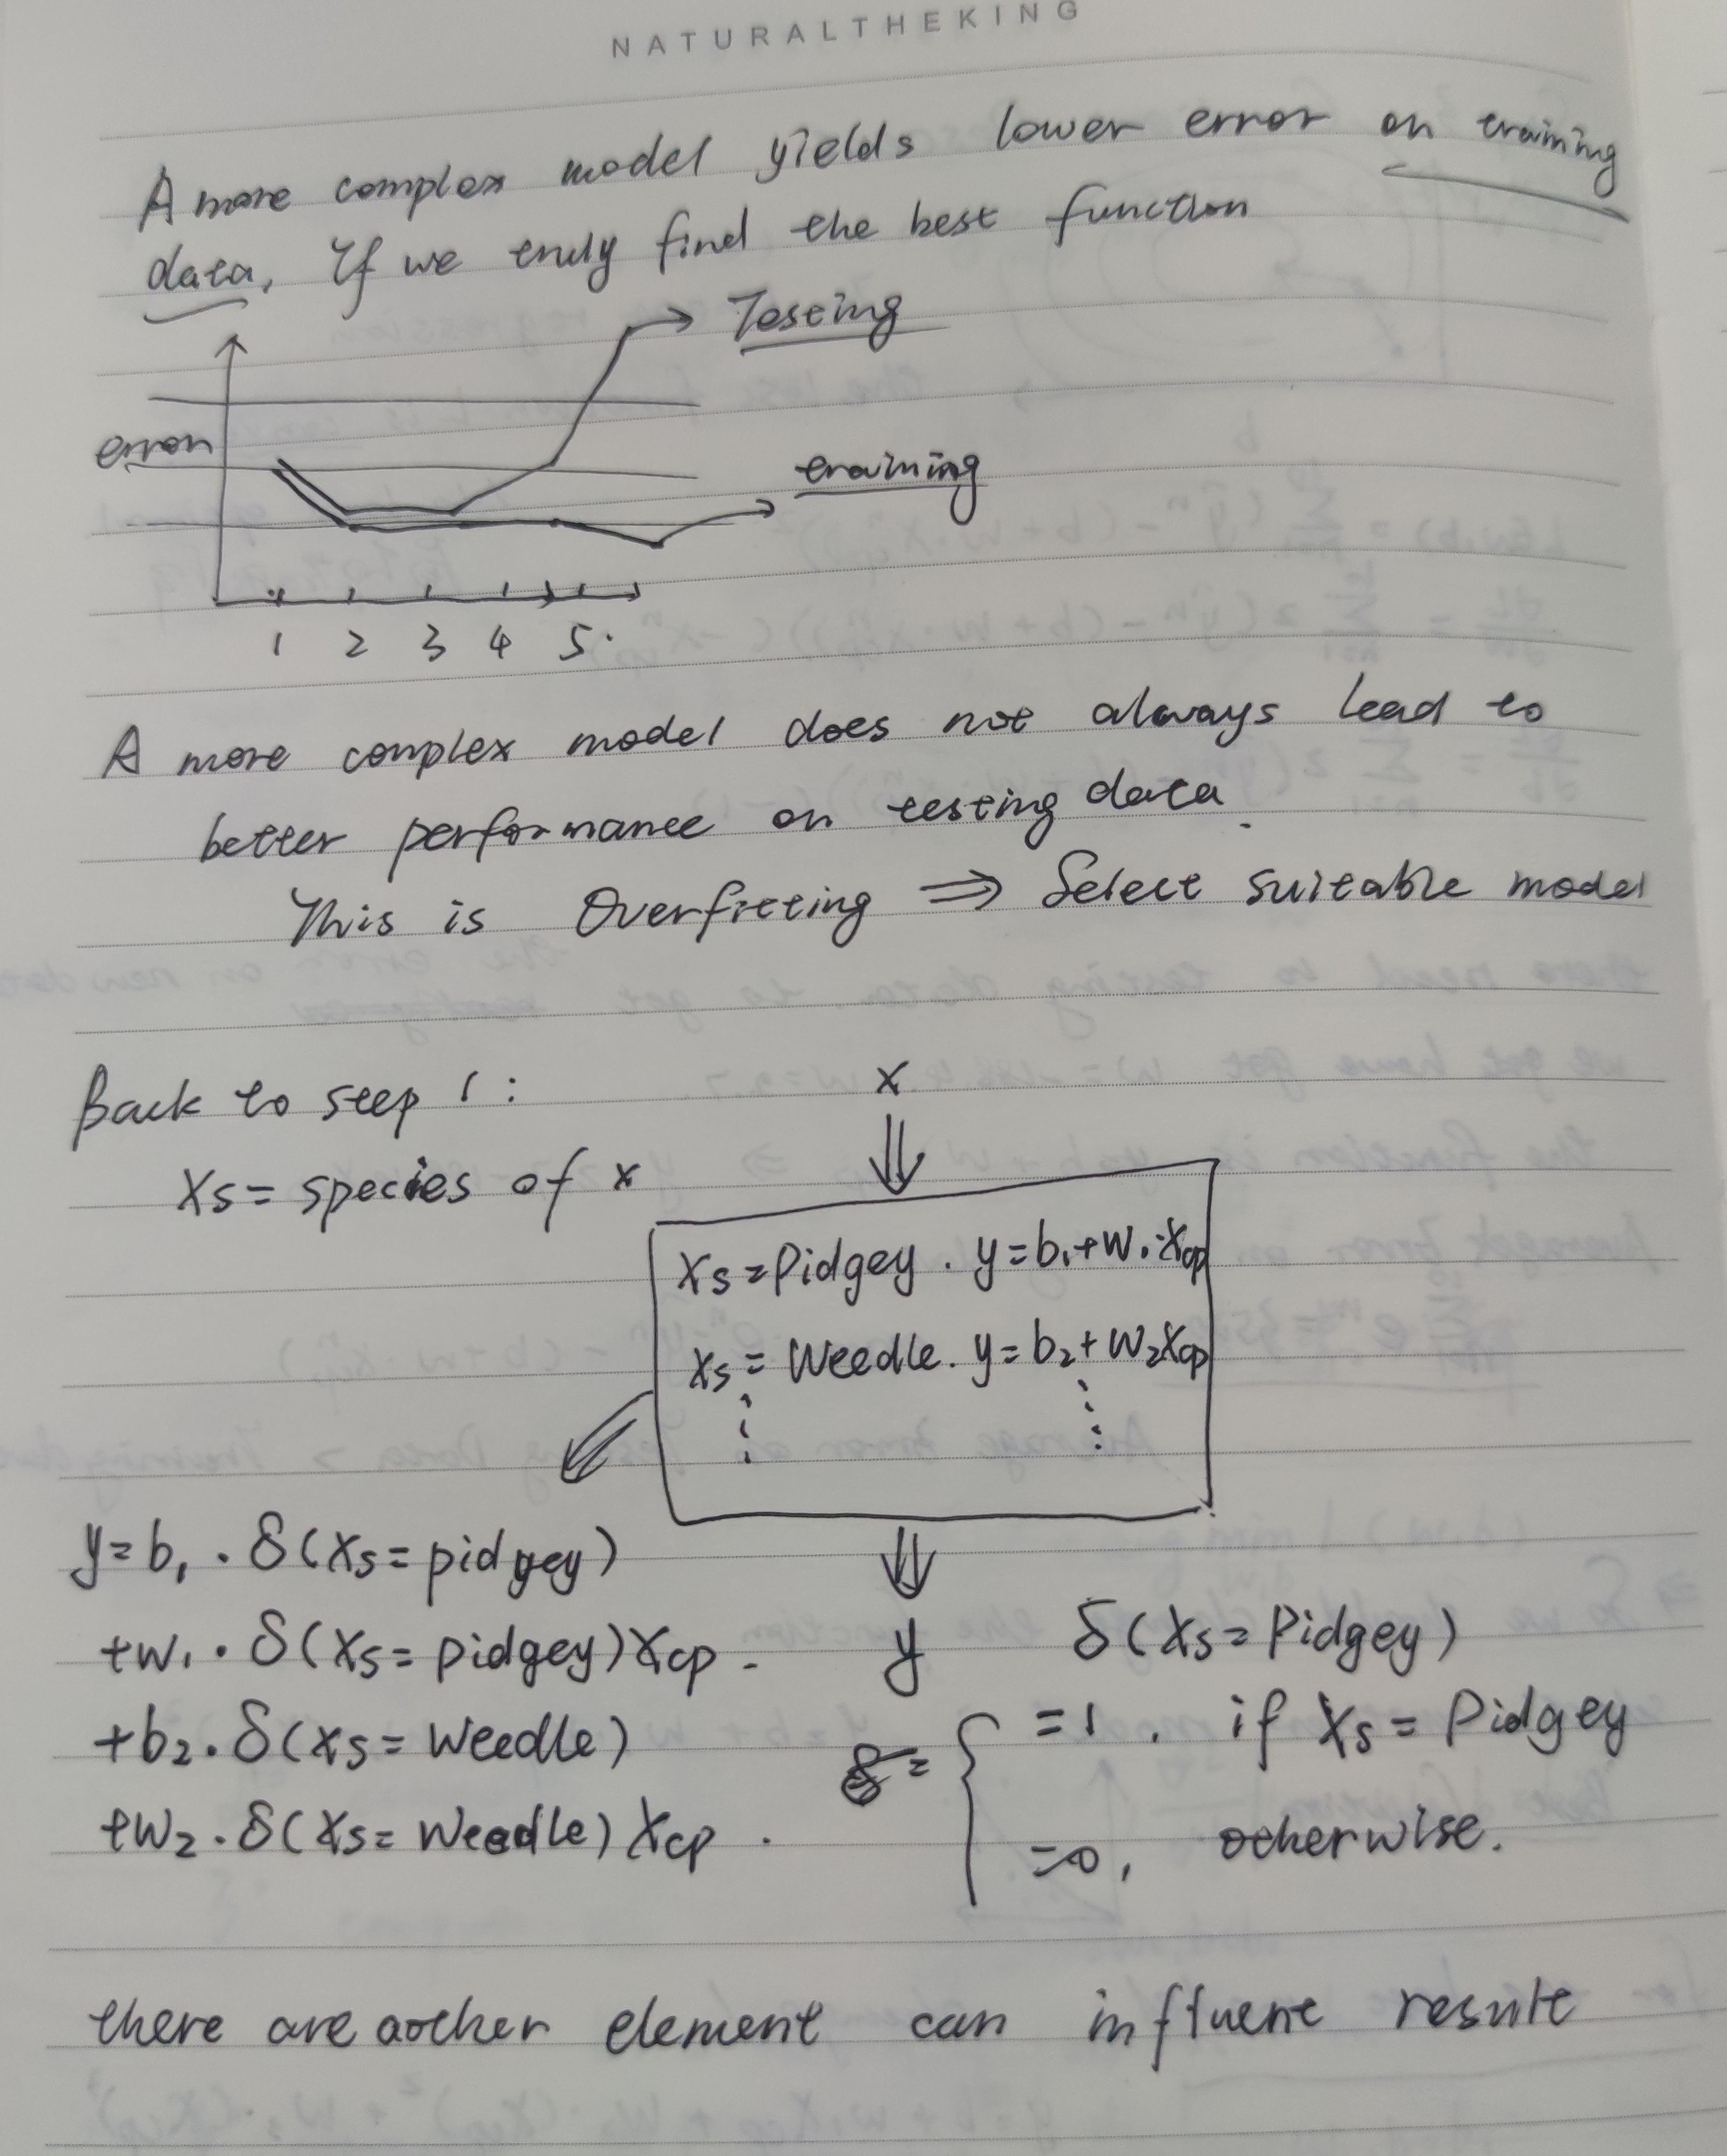 NATURALTHEKING
A more complex model yields lower error on training
data, If we truly find the best function
Testing
error
training
1 2 3 4 5.
A more complex model does not always lead to
better performance on testing data.
This is Overfitting ⇒ Select suitable model
Back to step 1:
Xs = species of x
x
Xs = Pidgey. y = b₁ + W₁·Xcp
Xs = Weedle. y = b₂ + W₂Xcp
y = b₁ · δ(Xs = pidgey)
+w₁ · δ(Xs = pidgey)Xcp.
+b₂ · δ(Xs = Weedle)
+w₂ · δ(Xs = Weedle)Xcp.
y
δ(Xs = Pidgey)
=1. if Xs = Pidgey
=0, otherwise.
there are aother element can influent result